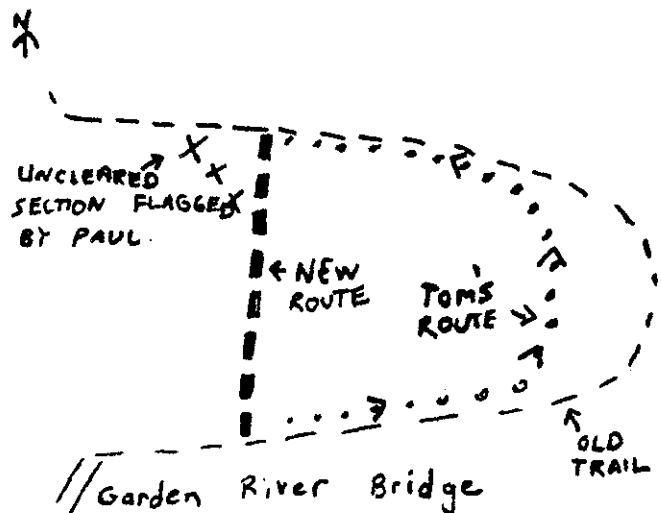 N
UNCLEARED
SECTION FLAGGED
BY PAUL.
NEW
ROUTE
TOM'S
ROUTE
OLD
TRAIL
Garden River Bridge